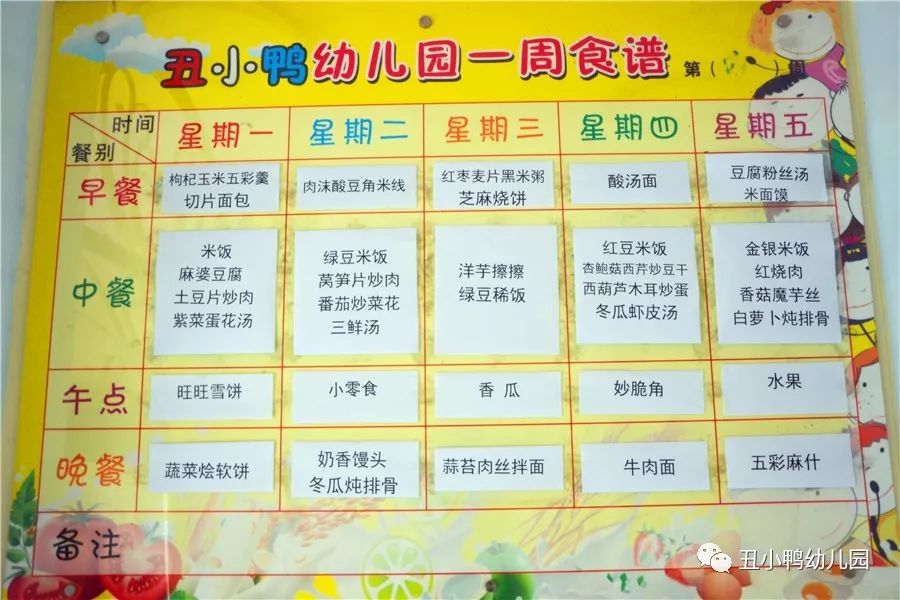 丑小鸭幼儿园一周食谱 第( )周
时间
餐别
星期一 星期二 星期三 星期四 星期五
早餐
枸杞玉米五彩羹
切片面包
肉沫酸豆角米线
红枣麦片黑米粥
芝麻烧饼
酸汤面
豆腐粉丝汤
米面馍
中餐
米饭
麻婆豆腐
土豆片炒肉
紫菜蛋花汤
绿豆米饭
莴笋片炒肉
番茄炒菜花
三鲜汤
洋芋擦擦
绿豆稀饭
红豆米饭
杏鲍菇西芹炒豆干
西葫芦木耳炒蛋
冬瓜虾皮汤
金银米饭
红烧肉
香菇魔芋丝
白萝卜炖排骨
午点
旺旺雪饼
小零食
香瓜
妙脆角
水果
晚餐
蔬菜烩软饼
奶香馒头
冬瓜炖排骨
蒜苔肉丝拌面
牛肉面
五彩麻什
备注
丑小鸭幼儿园